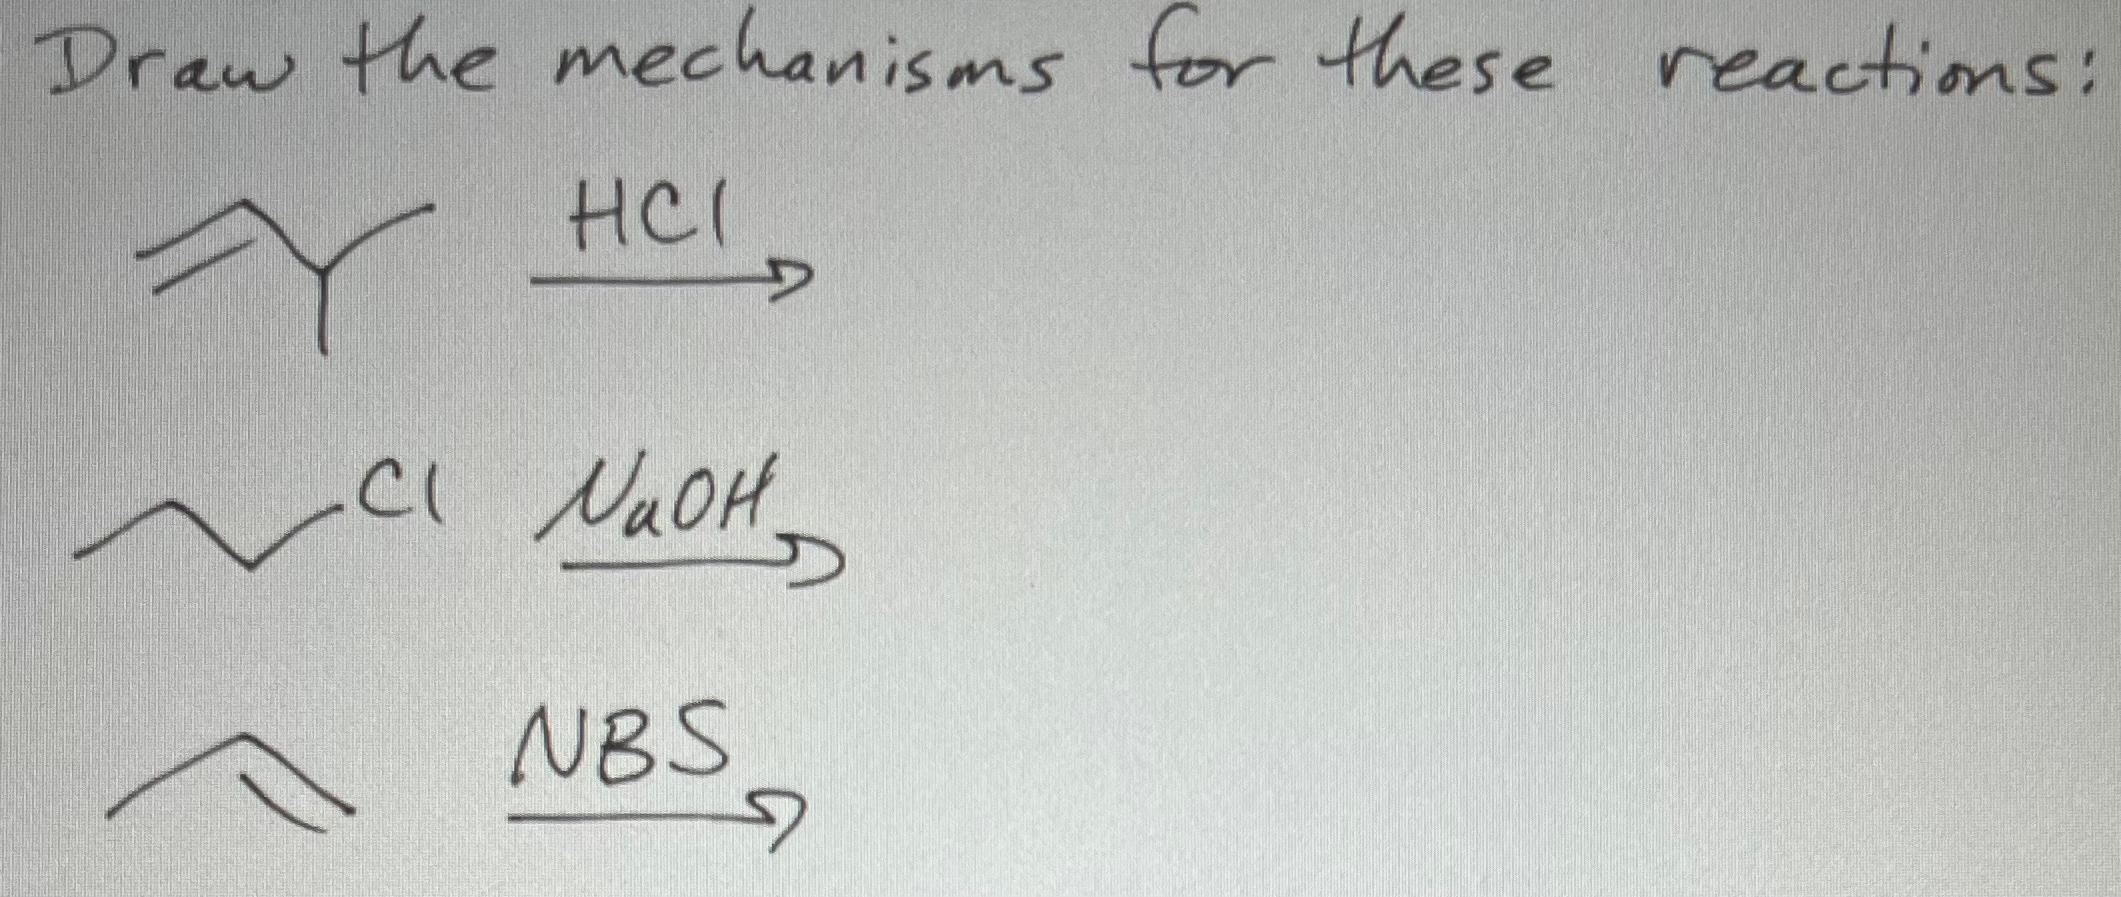 Draw the mechanisms for these reactions:
HCl
Cl NaOH
NBS